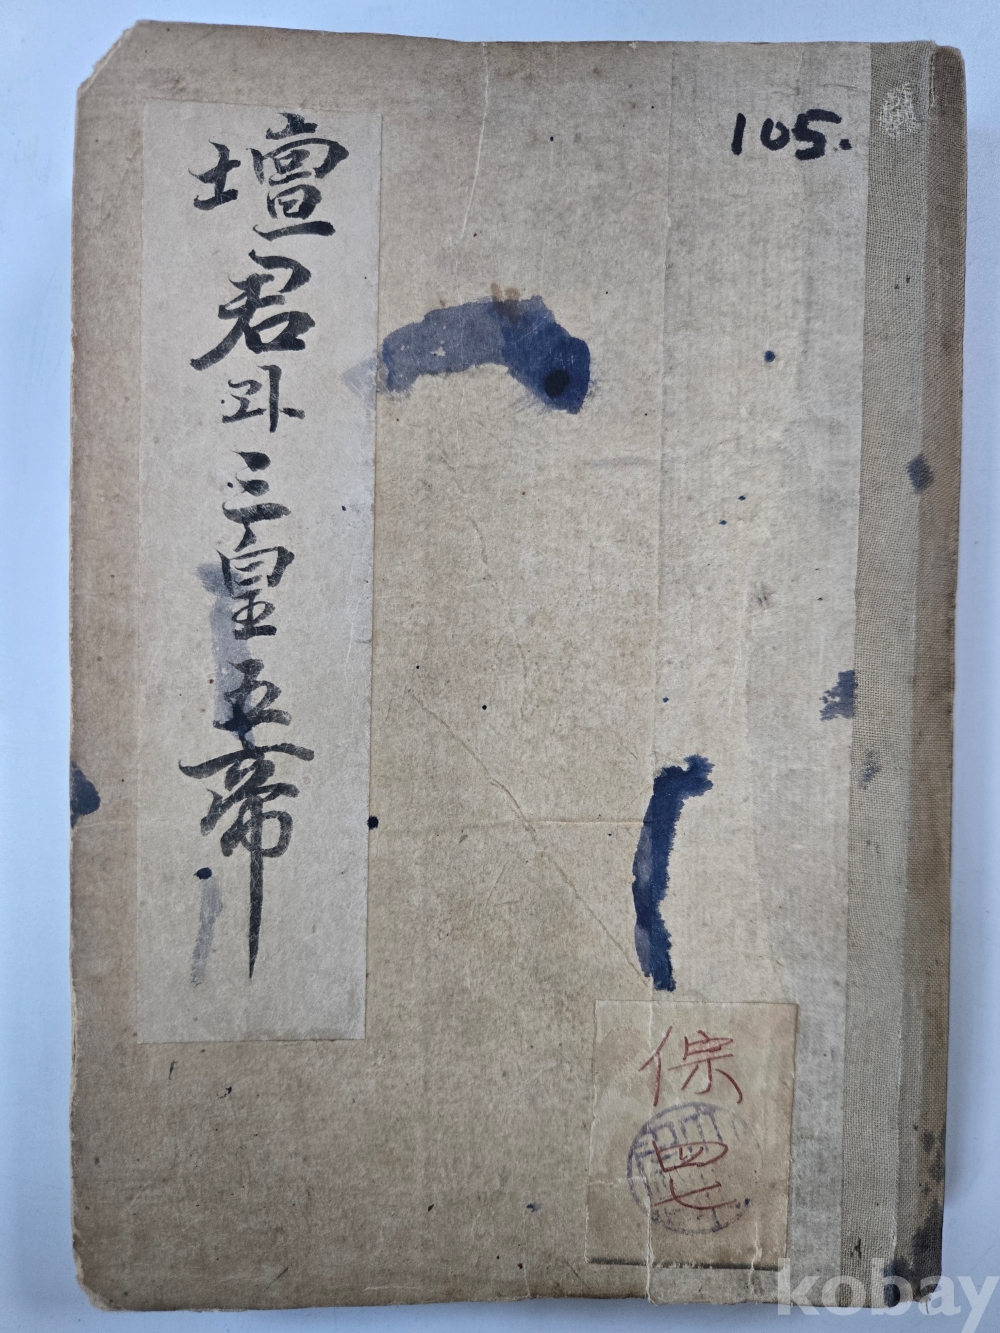 105.
壇君과三皇五帝
倧
四七
kobay